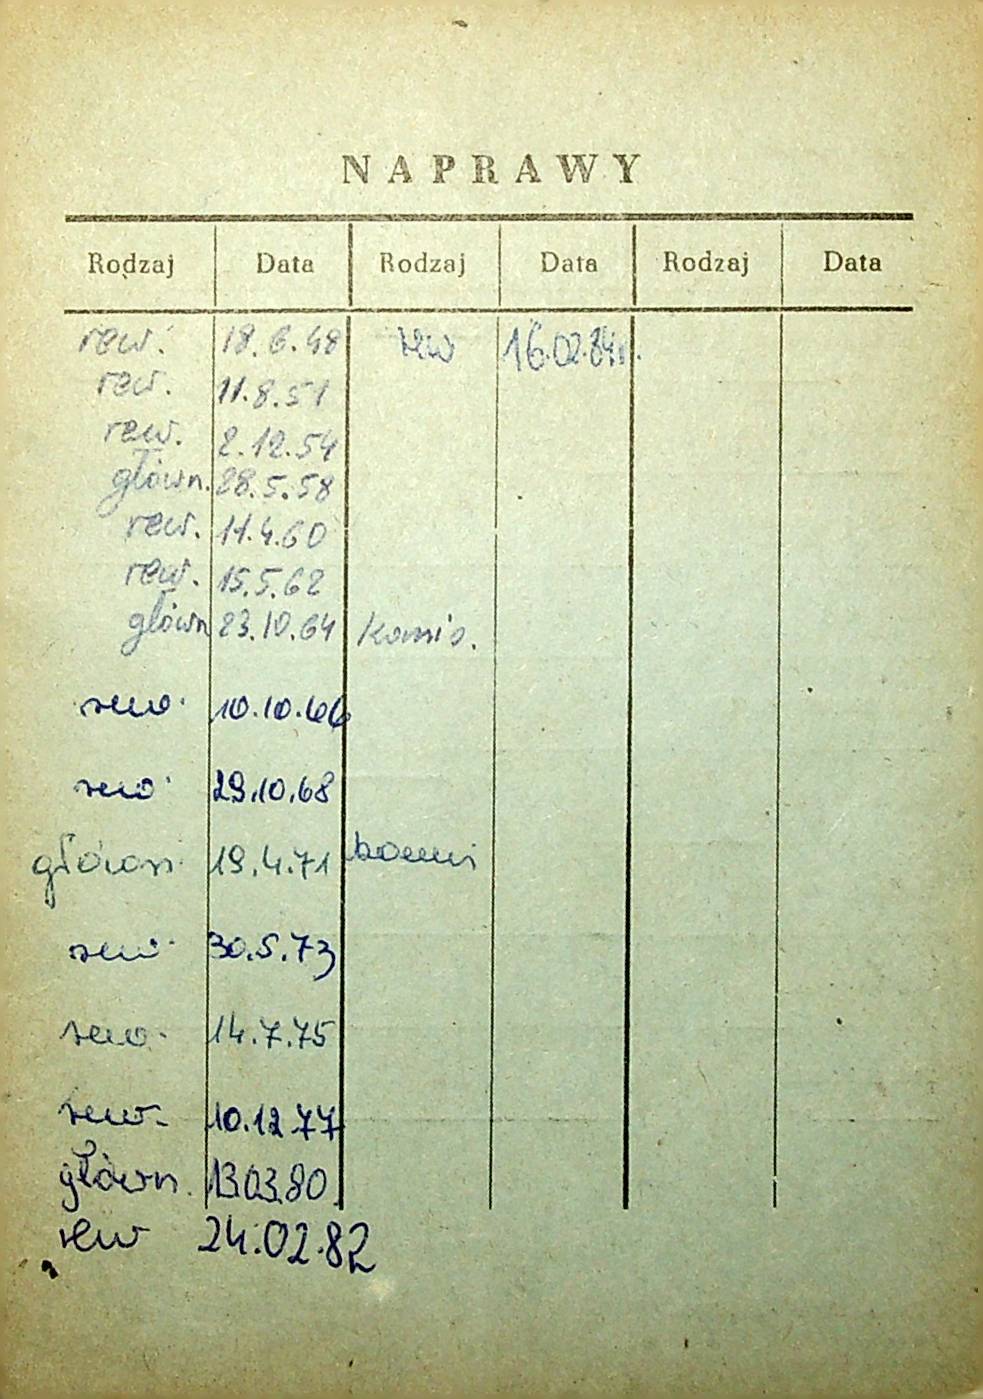 NAPRAWY
Rodzaj Data Rodzaj Data Rodzaj Data
rew. 18.6.48 rew 16.02.84r.
rew. 11.8.51
rew. 2.12.54
główn. 28.5.58
rew. 11.4.60
rew. 15.5.62
główn 23.10.64 komis.
rew. 10.10.66
rew. 29.10.68
główn. 19.4.71
rew. 30.5.73
rew. 14.7.75
rew. 10.12.77
główn. 13.03.80
rew 24.02.82